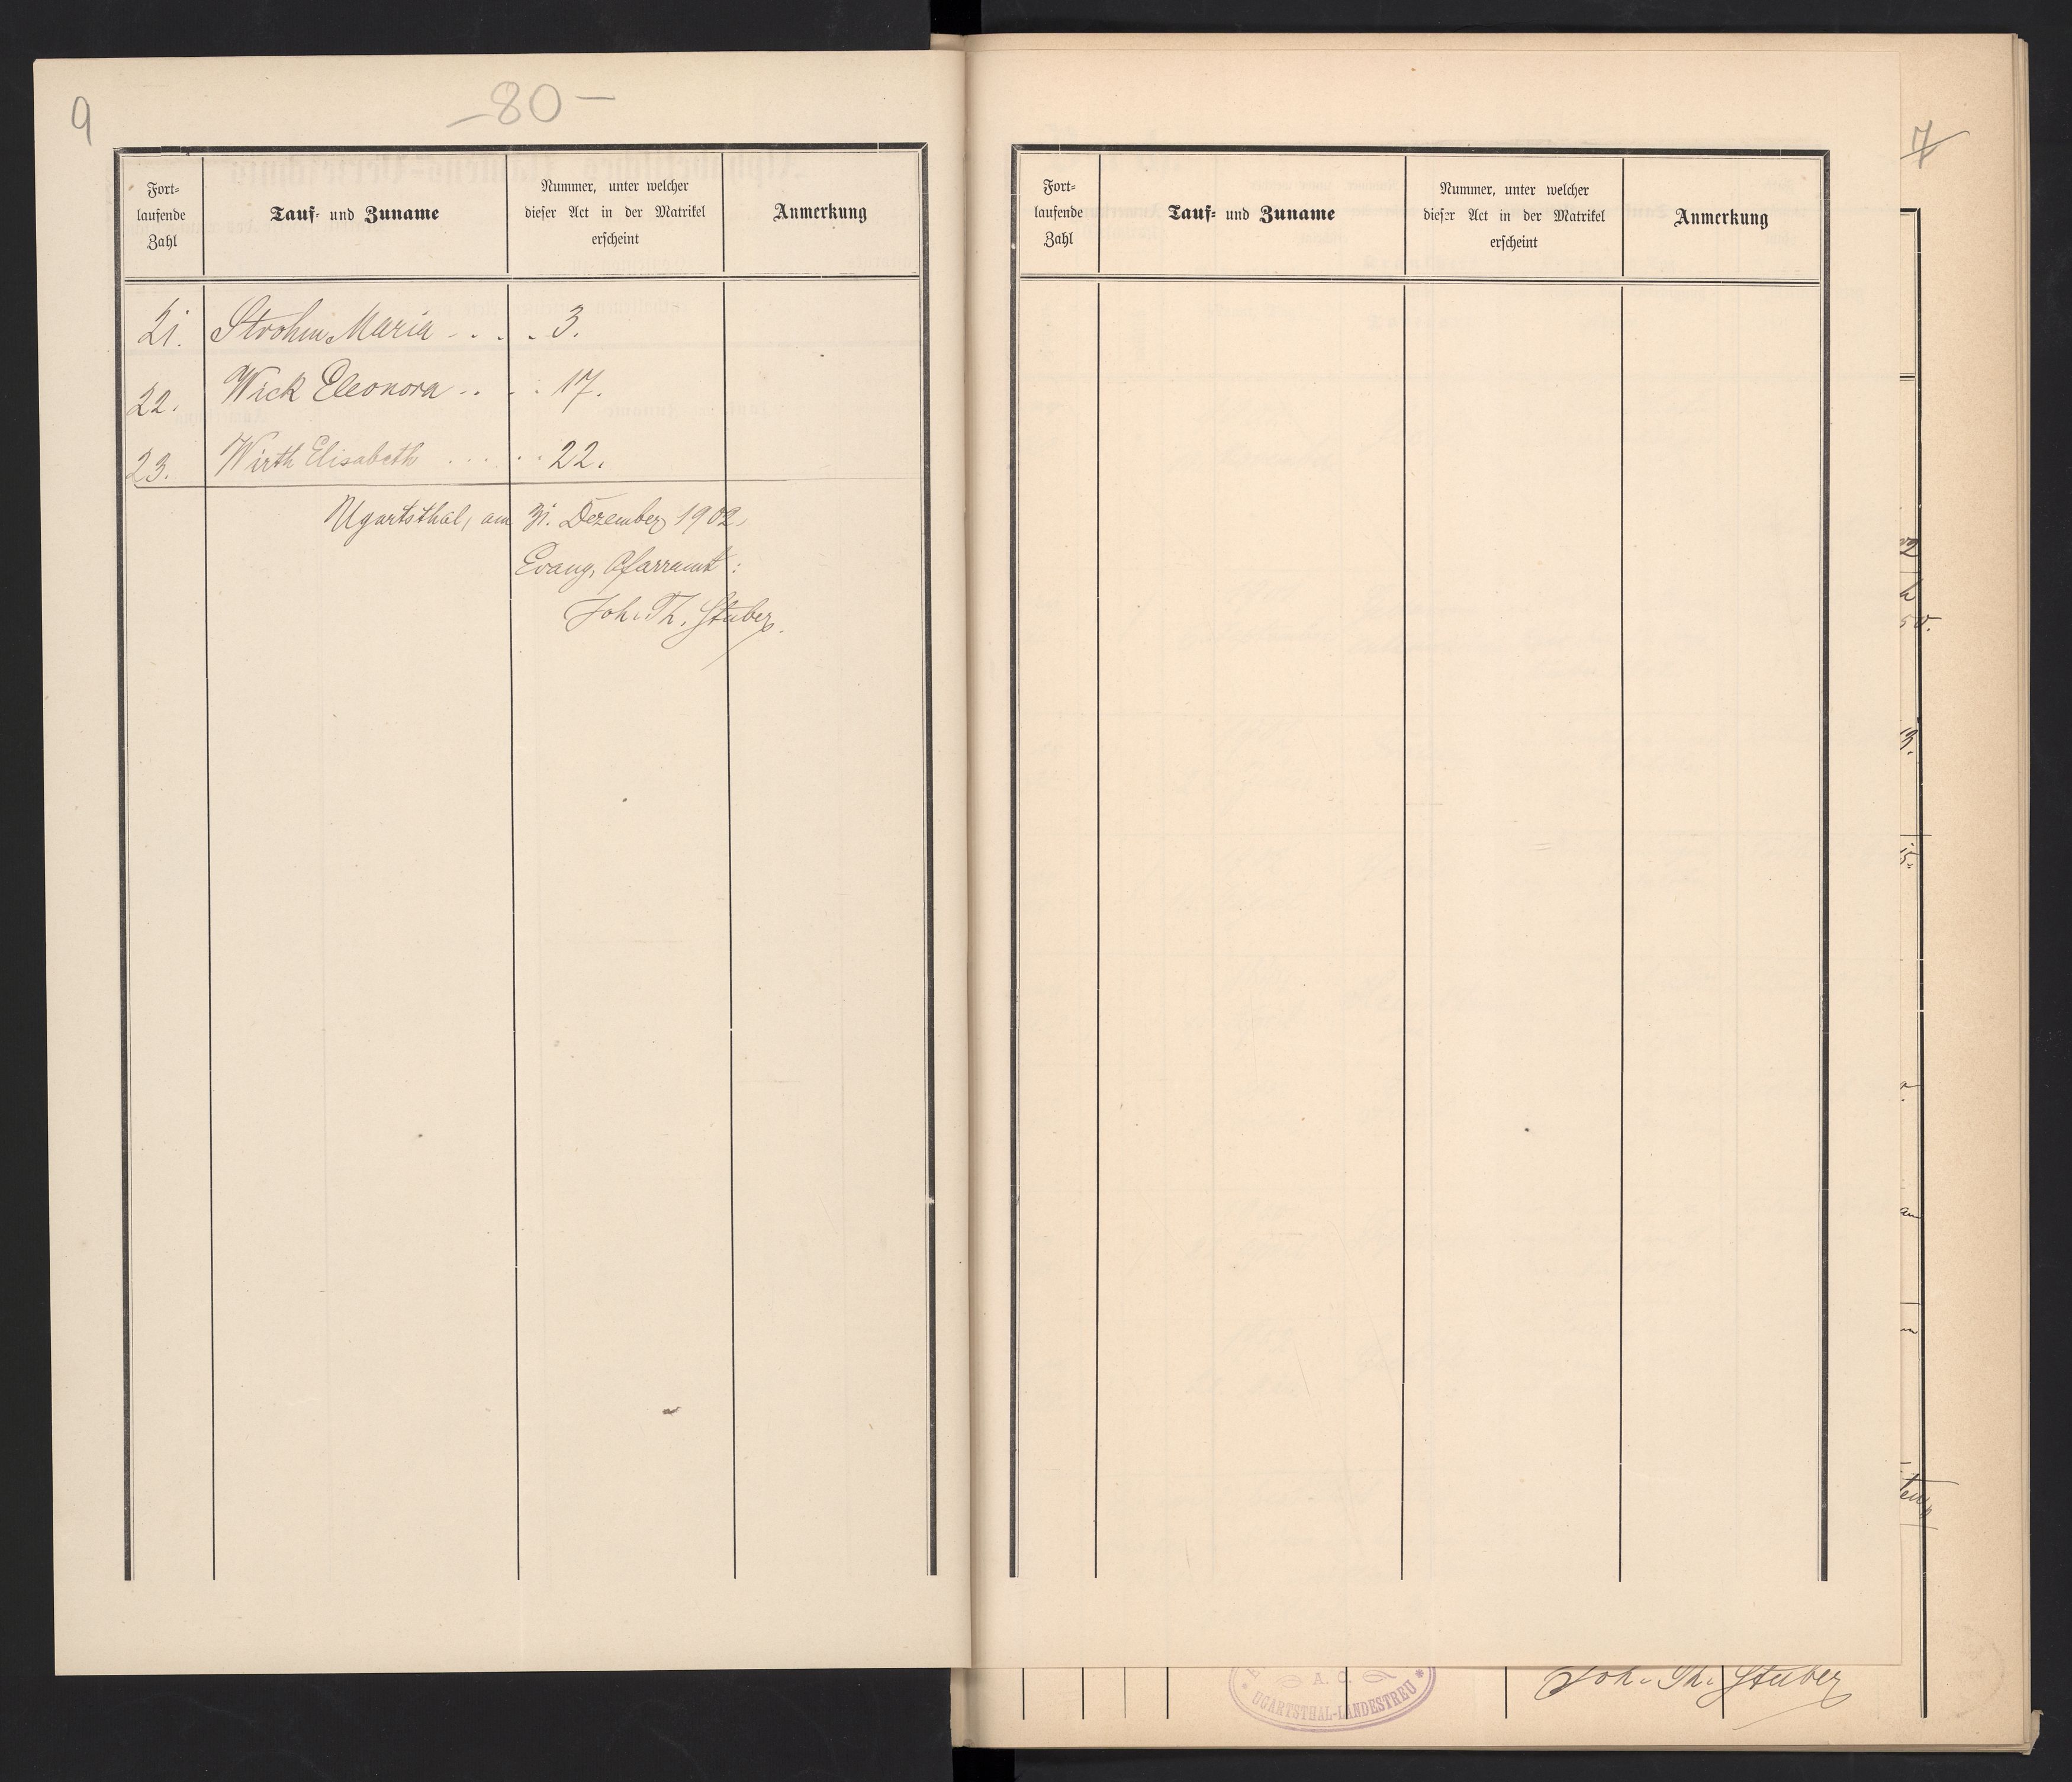 9
-80-
Fort-
laufende
Zahl
Tauf- und Zuname
Nummer, unter welcher
dieser Act in der Matrikel
erscheint
Anmerkung
21. Strohm Maria - . . . 3.
22. Wick Eleonora . . . . 17.
23. Wirth Elisabeth . . . . . 22.
Ugartsthal, am 31. Dezember 1902.
Evang. Pfarramt :
Joh. Th. Stuber.
Fort-
laufende
Zahl
Tauf- und Zuname
Nummer, unter welcher
dieser Act in der Matrikel
erscheint
Anmerkung
7
A. C.
UGARTSTHAL-LANDESTREU
Joh. Th. Stuber